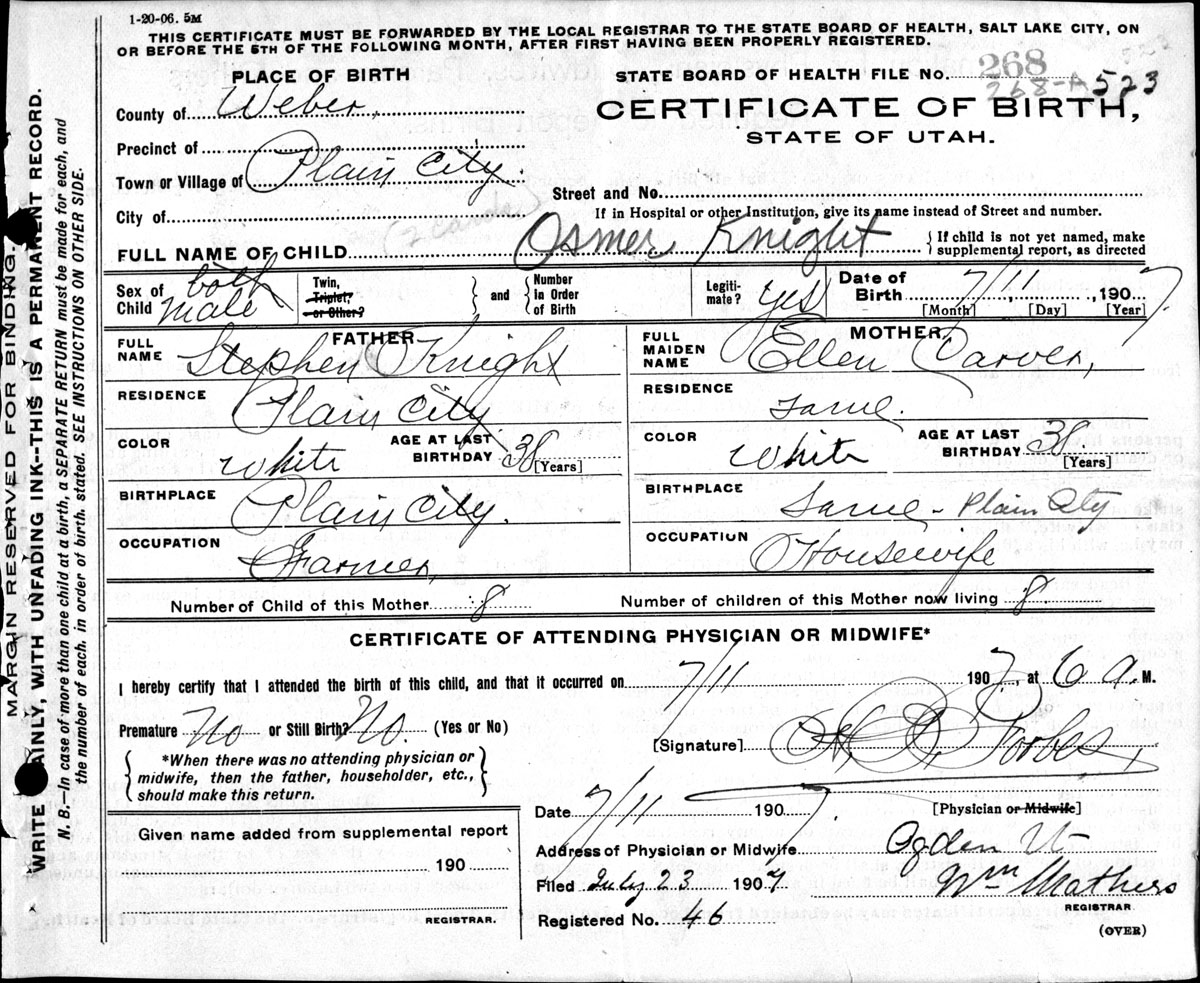 1-20-06. 5M
THIS CERTIFICATE MUST BE FORWARDED BY THE LOCAL REGISTRAR TO THE STATE BOARD OF HEALTH, SALT LAKE CITY, ON
OR BEFORE THE 5TH OF THE FOLLOWING MONTH, AFTER FIRST HAVING BEEN PROPERLY REGISTERED.
PLACE OF BIRTH
STATE BOARD OF HEALTH FILE NO. 268
268-A 523
523
County of Weber,
CERTIFICATE OF BIRTH,
STATE OF UTAH.
Precinct of
Town or Village of Plain City.
Street and No.
City of
If in Hospital or other Institution, give its name instead of Street and number.
FULL NAME OF CHILD Osmer Knight
{If child is not yet named, make
supplemental report, as directed
Sex of Child both Male
Twin, Triplet? or Other? } and { Number in Order of Birth
Legitimate? yes
Date of Birth 7/11, 1907
[Month] [Day] [Year]
FATHER
FULL NAME Stephen Knight
MOTHER
FULL MAIDEN NAME Ellen Carver,
RESIDENCE Plain City
RESIDENCE Same.
COLOR White
AGE AT LAST BIRTHDAY 38 [Years]
COLOR White
AGE AT LAST BIRTHDAY 38 [Years]
BIRTHPLACE Plain City.
BIRTHPLACE Same - Plain City
OCCUPATION Farmer,
OCCUPATION Housewife
Number of Child of this Mother 8
Number of children of this Mother now living 8
CERTIFICATE OF ATTENDING PHYSICIAN OR MIDWIFE*
I hereby certify that I attended the birth of this child, and that it occurred on 7/11 1907, at 6 a. M.
Premature No or Still Birth? No. (Yes or No)
[Signature] Forbes,
{*When there was no attending physician or
midwife, then the father, householder, etc.,
should make this return.}
Date 7/11 1907
[Physician or Midwife]
Given name added from supplemental report
190
REGISTRAR.
Address of Physician or Midwife Ogden Ut
Filed July 23 1907
Wm Mathers
REGISTRAR
Registered No. 46
(OVER)
MARGIN RESERVED FOR BINDING.
WRITE AINLY, WITH UNFADING INK--THIS IS A PERMANENT RECORD.
N. B.—In case of more than one child at a birth, a SEPARATE RETURN must be made for each, and
the number of each, in order of birth, stated. SEE INSTRUCTIONS ON OTHER SIDE.